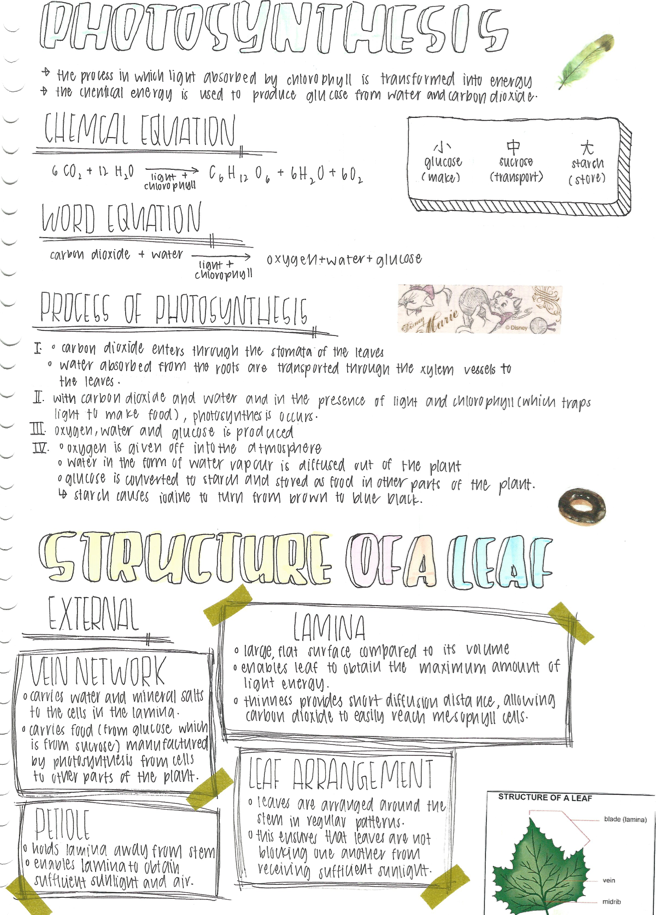 PHOTOSYNTHESIS
→ the process in which light absorbed by chlorophyll is transformed into energy
→ the chemical energy is used to produce glucose from water and carbon dioxide.
CHEMCAL EQUATION
6 CO₂ + 12 H₂O → C₆ H₁₂ O₆ + 6H₂O + 6O₂
light +
chlorophyll
小 中 大
glucose sucrose starch
(make) (transport) (store)
WORD EQUATION
carbon dioxide + water → oxygen+water+glucose
light +
chlorophyll
PROCESS OF PHOTOSYNTHESIS
Marie
© Disney
I. ∘ carbon dioxide enters through the stomata of the leaves
∘ water absorbed from the roots are transported through the xylem vessels to
the leaves.
II. with carbon dioxide and water and in the presence of light and chlorophyll (which traps
light to make food), photosynthesis occurs.
III. oxygen, water and glucose is produced
IV. ∘ oxygen is given off into the atmosphere
∘ water in the form of water vapour is diffused out of the plant
∘ glucose is converted to starch and stored as food in other parts of the plant.
↳ starch causes iodine to turn from brown to blue black.
STRUCTURE OF A LEAF
EXTERNAL
LAMINA
∘ large, flat surface compared to its volume
∘ enables leaf to obtain the maximum amount of
light energy.
∘ thinness provides short diffusion distance, allowing
carbon dioxide to easily reach mesophyll cells.
VEIN NETWORK
∘ carries water and mineral salts
to the cells in the lamina.
∘ carries food (from glucose which
is from sucrose) manufactured
by photosynthesis from cells
to other parts of the plant.
LEAF ARRANGEMENT
∘ leaves are arranged around the
stem in regular patterns.
∘ this ensures that leaves are not
blocking one another from
receiving sufficient sunlight.
PETIOLE
∘ holds lamina away from stem
∘ enables lamina to obtain
sufficient sunlight and air.
STRUCTURE OF A LEAF
blade (lamina)
vein
midrib